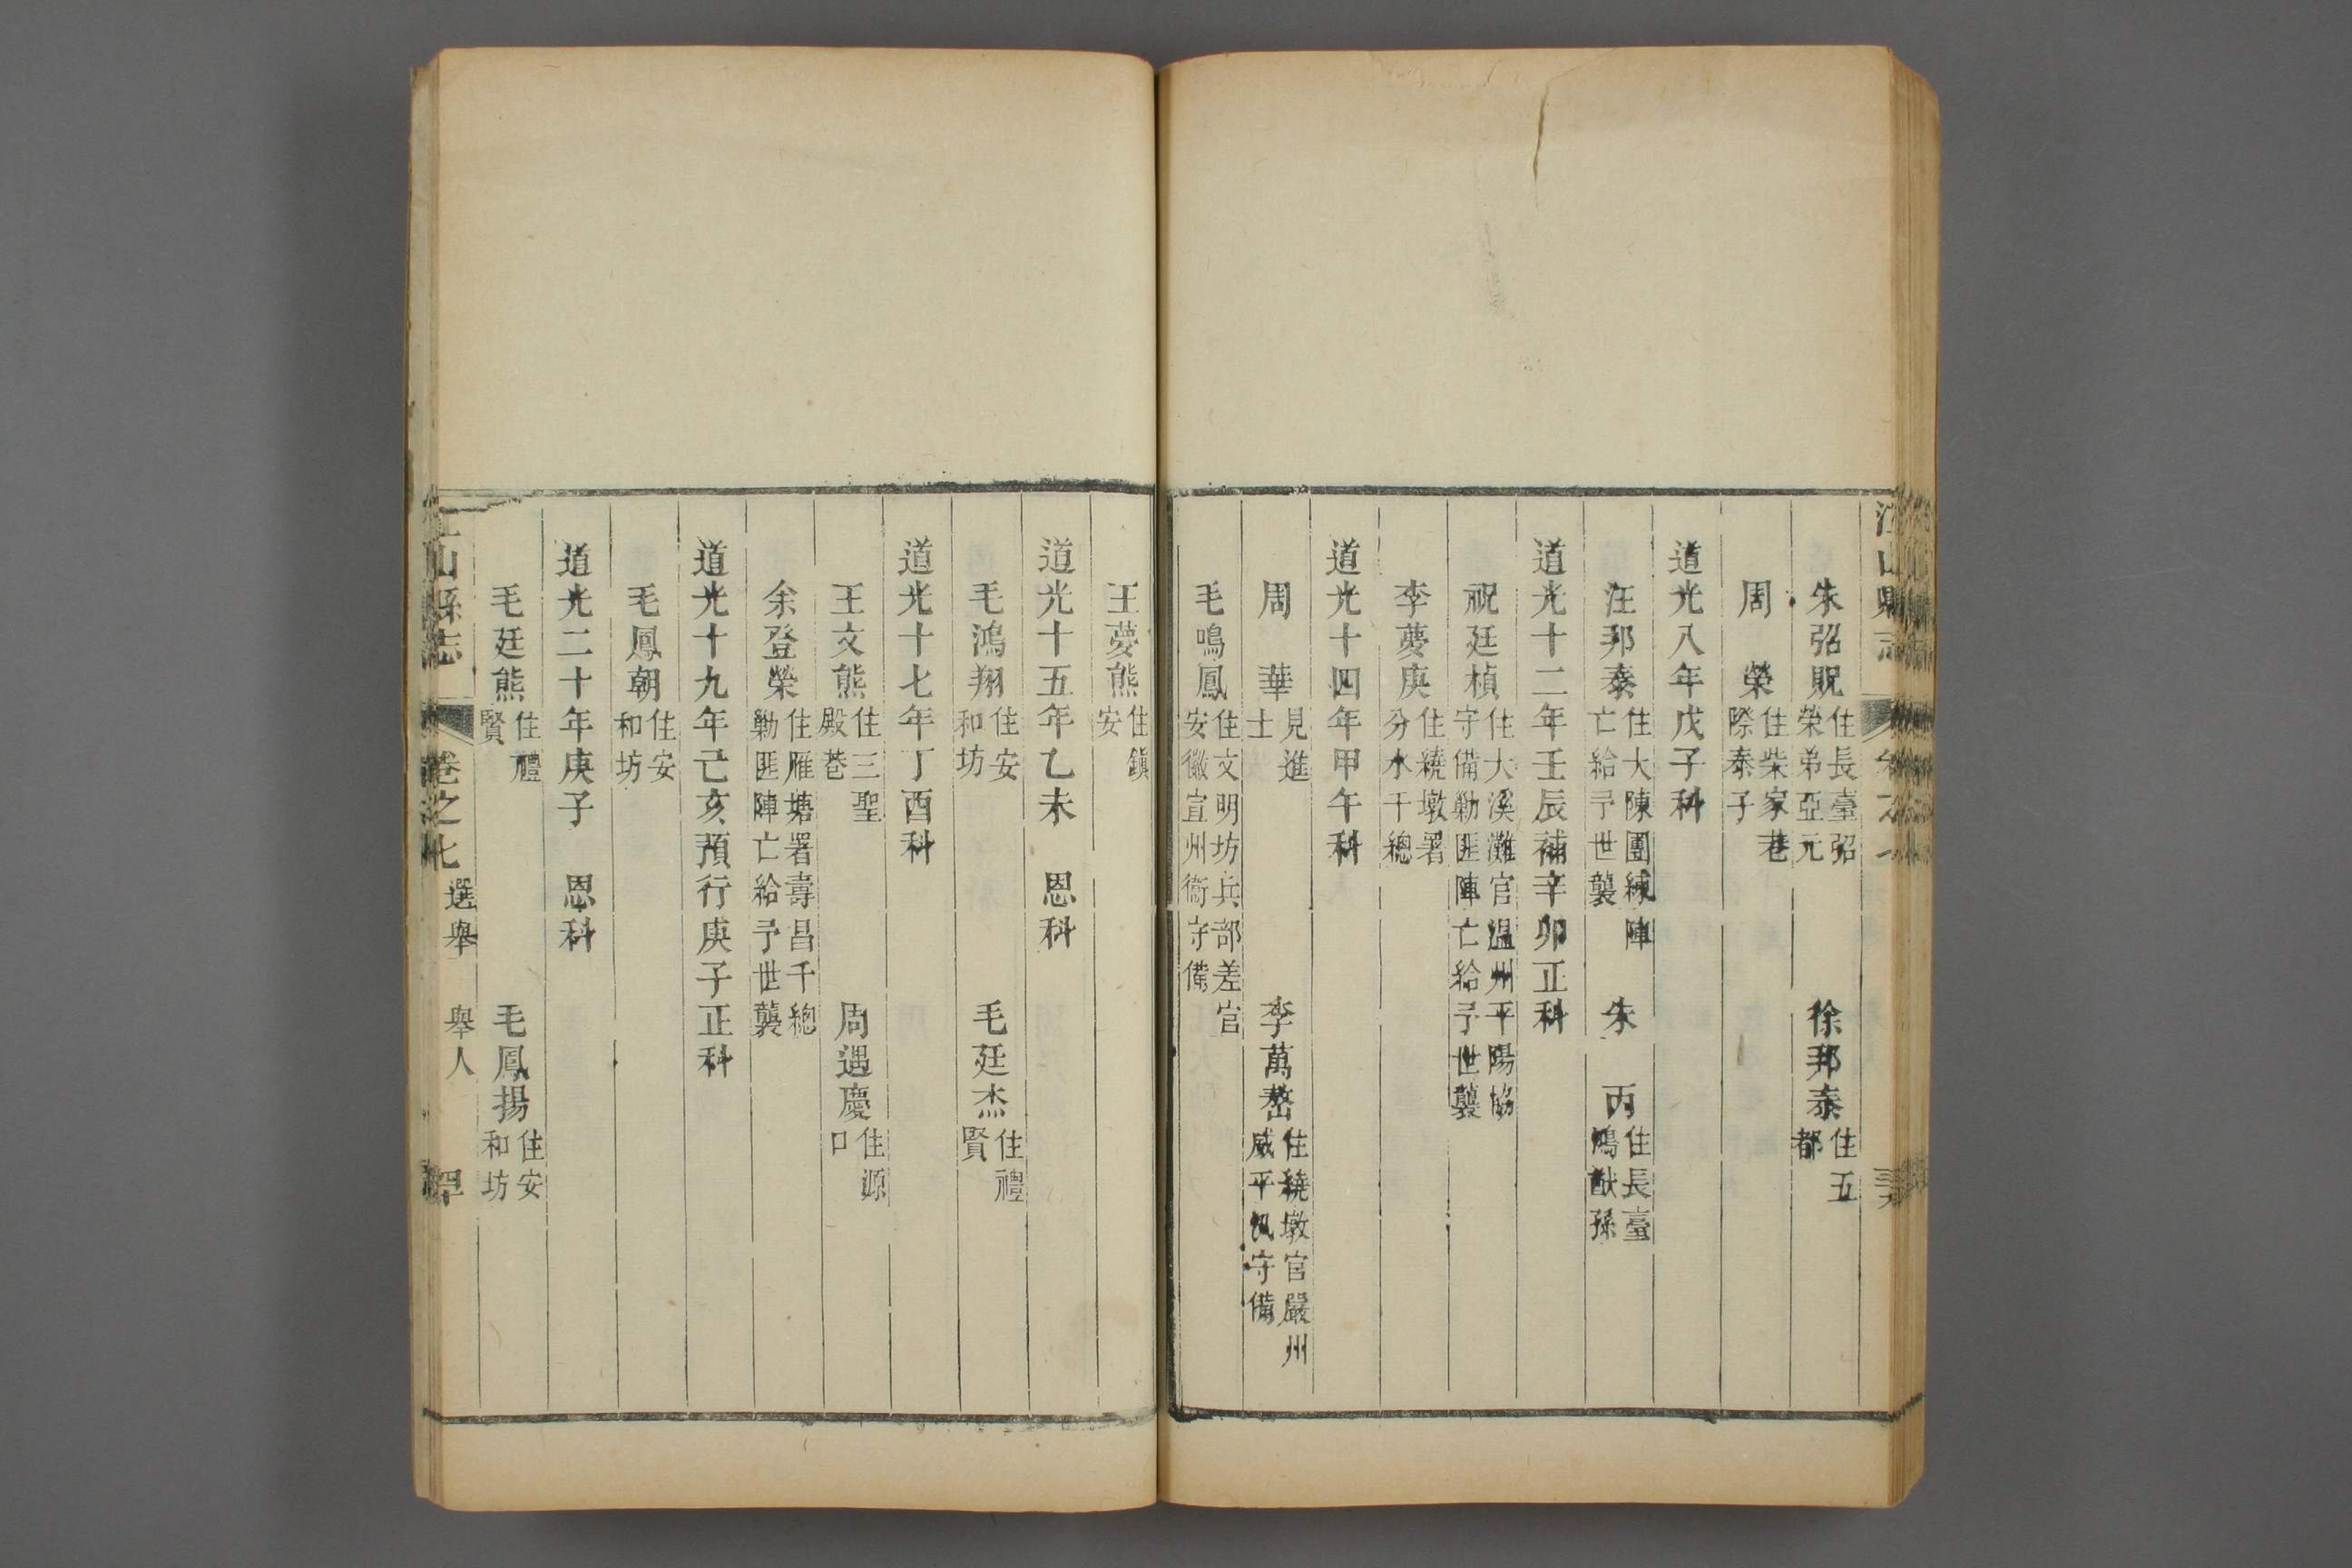 江山縣志
朱弨貺住長臺弨榮弟亞元 徐邦泰住五都
周 榮住柴家巷際泰子
道光八年戊子科
汪邦泰住大陳團練陣亡給予世襲 朱 丙住長臺鴻猷孫
道光十二年壬辰補辛卯正科
祝廷楨住大溪灘官溫州平陽協守備勦匪陣亡給予世襲
李夢庚住繞墩署分水千總
道光十四年甲午科
周 華見進士 李萬嶅住繞墩官嚴州威平汛守備
毛鳴鳳住文明坊兵部差官安徽宣州衛守備
王夢熊住鎮安
道光十五年乙未 恩科
毛鴻翔住安和坊 毛廷杰住禮賢
道光十七年丁酉科
王文熊住三聖殿巷 周遇慶住源口
余登榮住雁塘署壽昌千總勦匪陣亡給予世襲
道光十九年己亥預行庚子正科
毛鳳朝住安和坊
道光二十年庚子 恩科
毛廷熊住禮賢 毛鳳揚住安和坊
江山縣志 卷之七 選舉 舉人